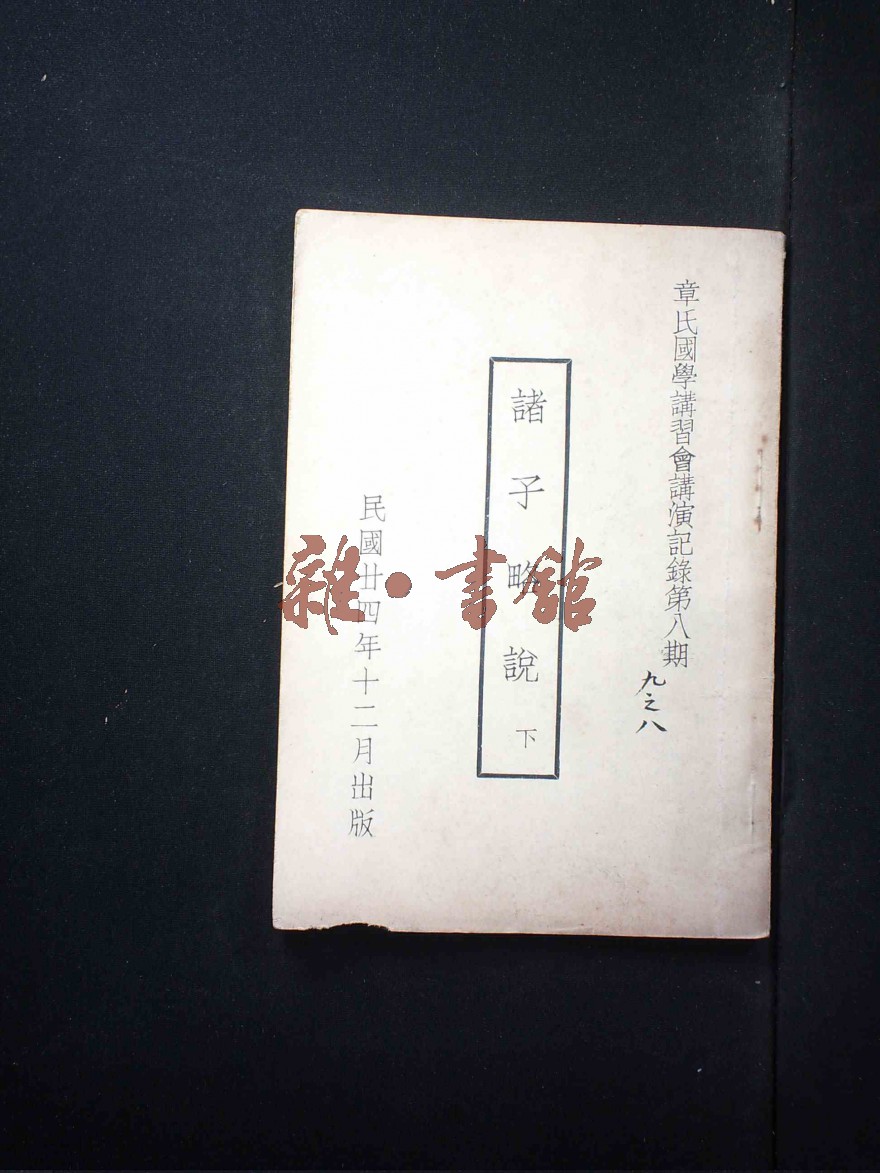 章氏國學講習會講演記錄第八期
九之八
諸子略說 下
民國廿四年十二月出版
雜·書館